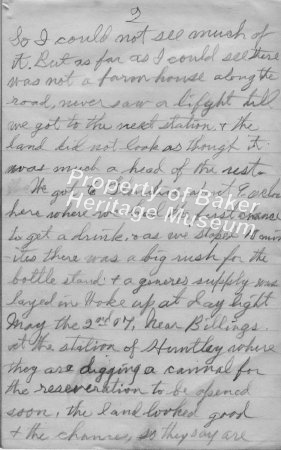 2
So I could not see much of
it. But as far as I could see there
was not a farm house along the
road, never saw a light till
we got to the next station & the
land did not look as though it
was much a head of the rest.
We got to
here where we first chance
to get a drink. & as we stoped
ites there was a big rush for the
bottle stand & a generes supply was
layed in. Woke up at day light
May the 2nd 07. Near Billings.
at the station of Huntley where
they are digging a cannal for
the reseveration to be opened
soon, the land looked good
& the chances, so they say are
Property of Baker
Heritage Museum